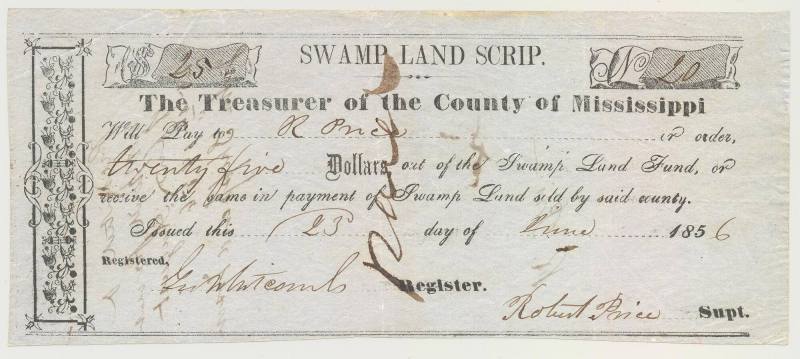 $ 25 SWAMP LAND SCRIP. No 20
The Treasurer of the County of Mississippi
Will Pay to R Price or order,
twenty five Dollars out of the Swamp Land Fund, or
receive the same in payment of Swamp Land sold by said county.
Issued this 23 day of June 1856
Registered,
Geo Whitcomb Register.
Robert Price Supt.